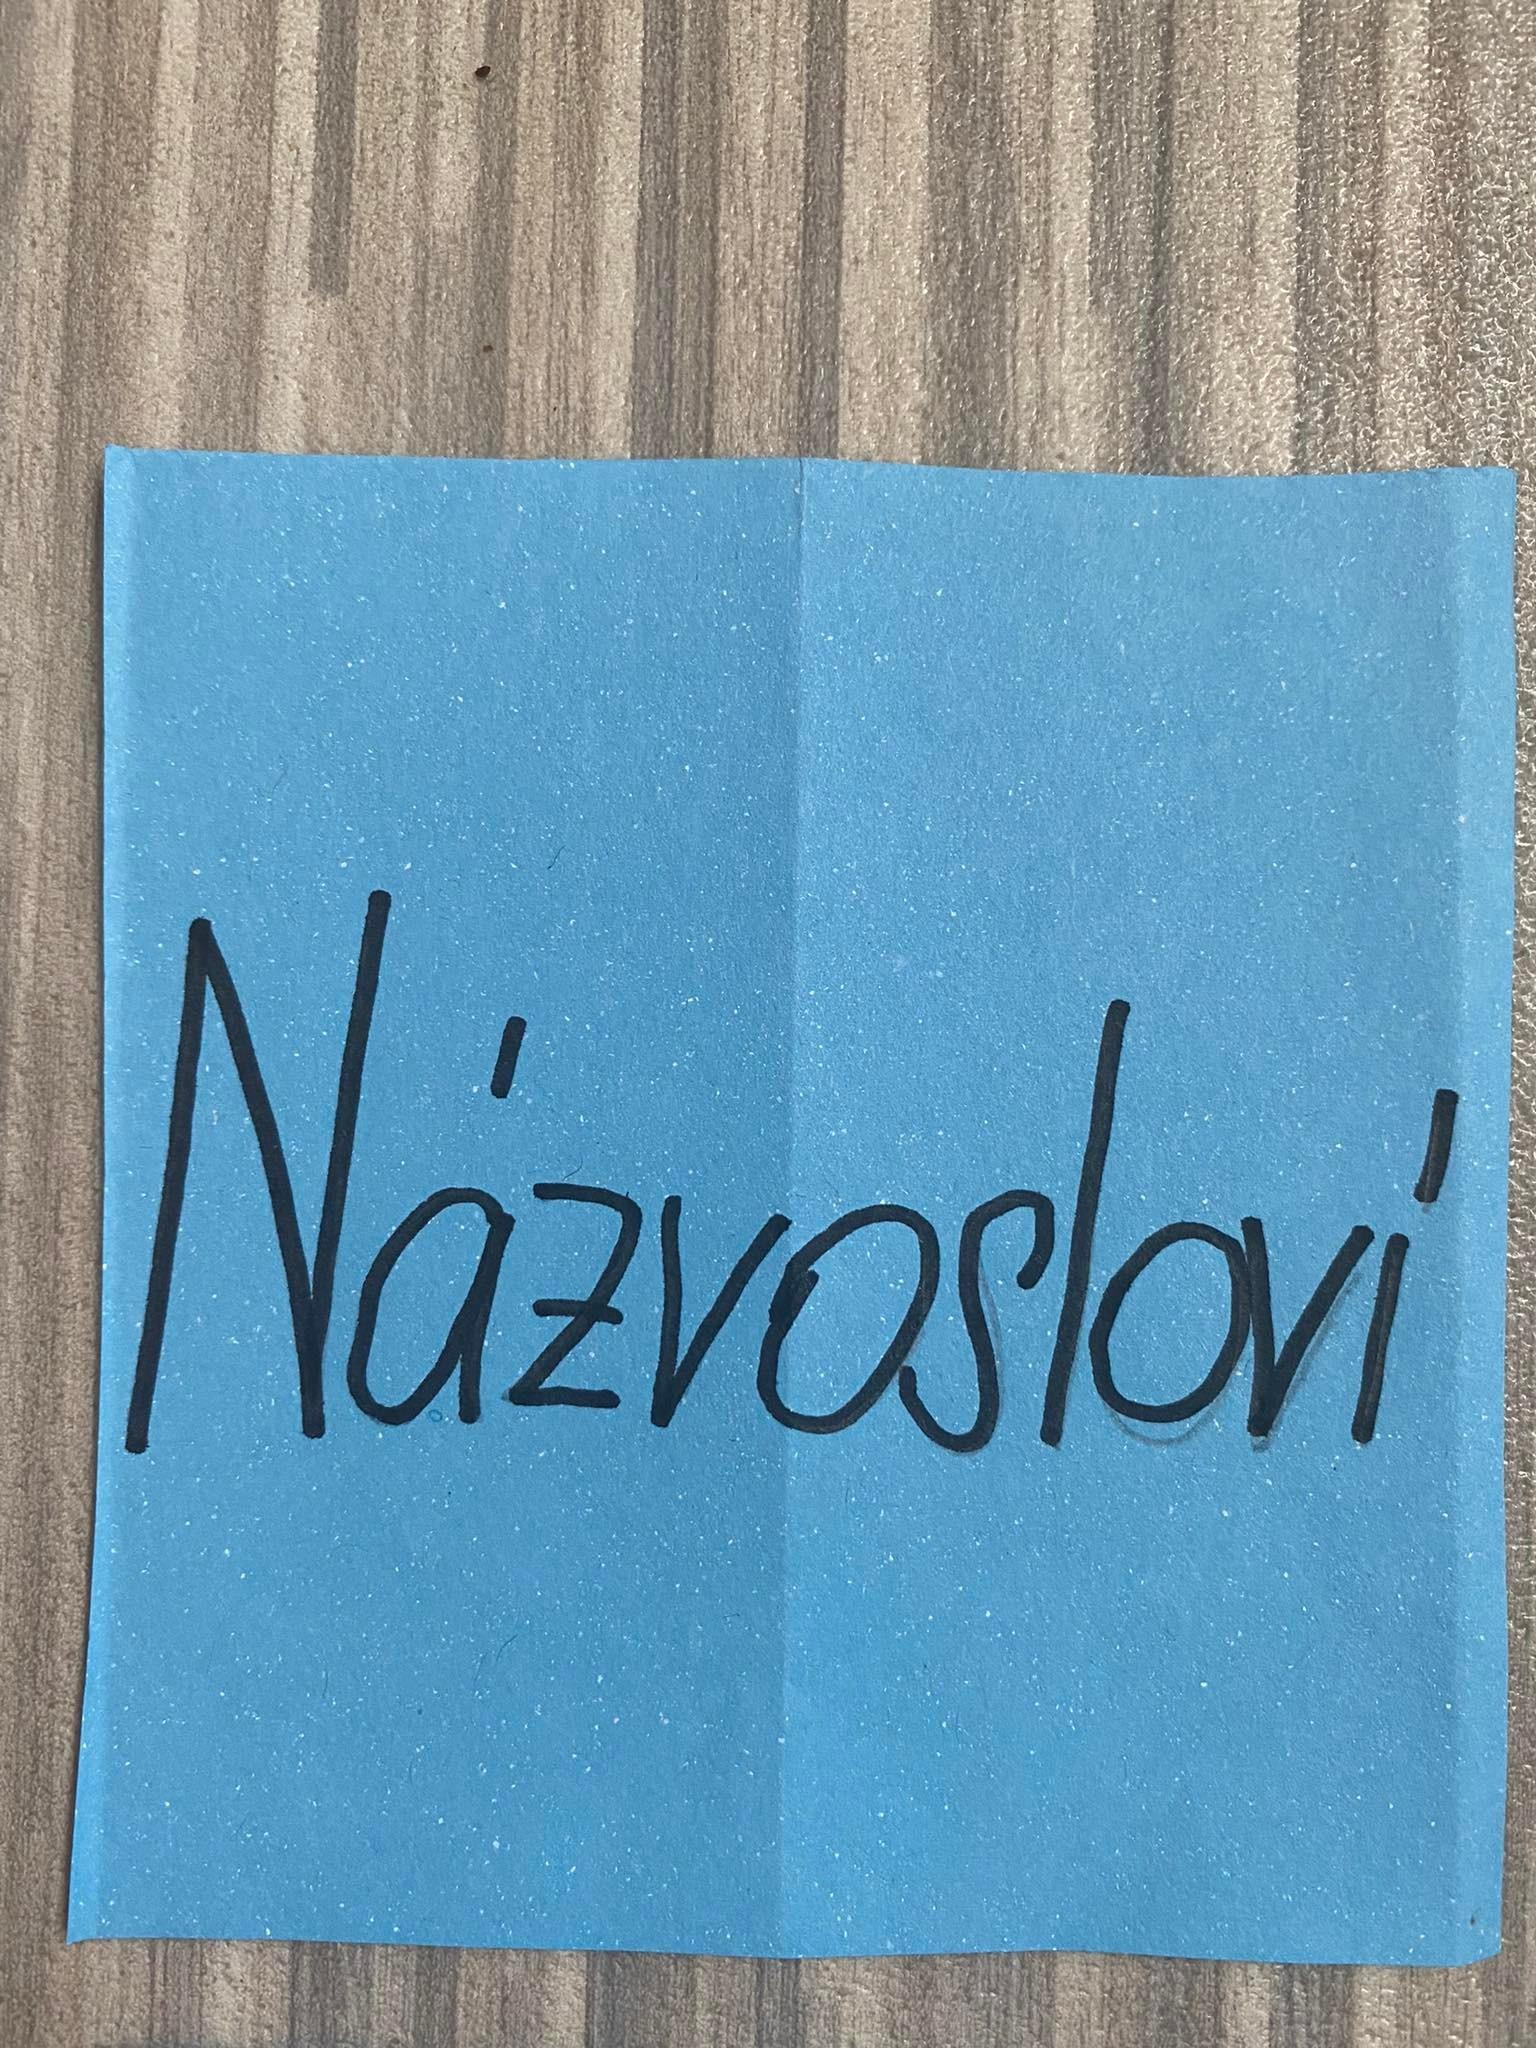 Názvosloví